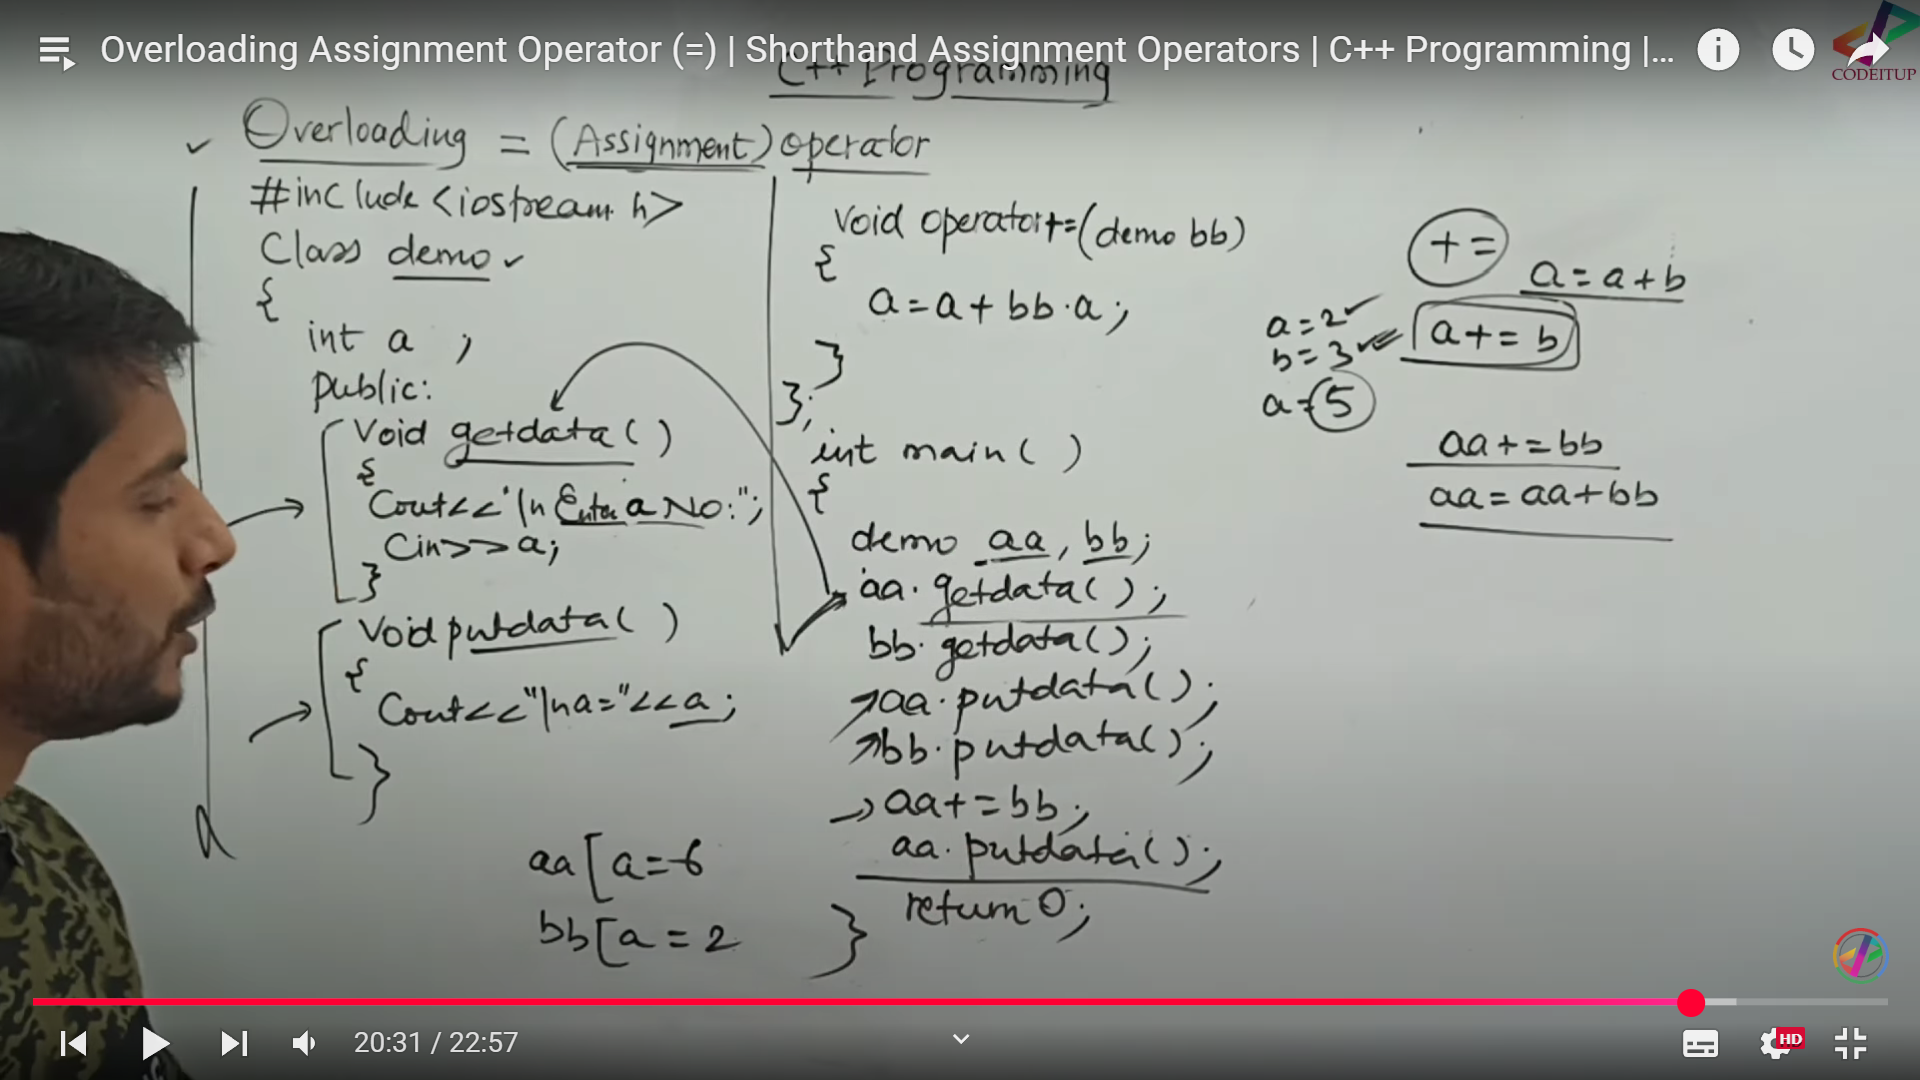 Overloading Assignment Operator (=) | Shorthand Assignment Operators | C++ Programming |...
CODEITUP
C++ Programming
Overloading = (Assignment) operator
#include <iostream.h>
Class demo
{
int a ;
public:
Void getdata( )
{
Cout<<"\n Enter a No:";
Cin>>a;
}
Void putdata( )
{
Cout<<"\na="<<a;
}
void operator+=(demo bb)
{
a=a+bb.a;
}
};
int main( )
{
demo aa, bb;
aa.getdata( );
bb.getdata();
aa.putdata( );
bb.putdata( );
aa+=bb;
aa.putdata( );
return 0;
}
aa[a=6
bb[a=2
+=
a=a+b
a=2
b=3
a+=b
a=5
aa+=bb
aa=aa+bb
20:31 / 22:57
HD